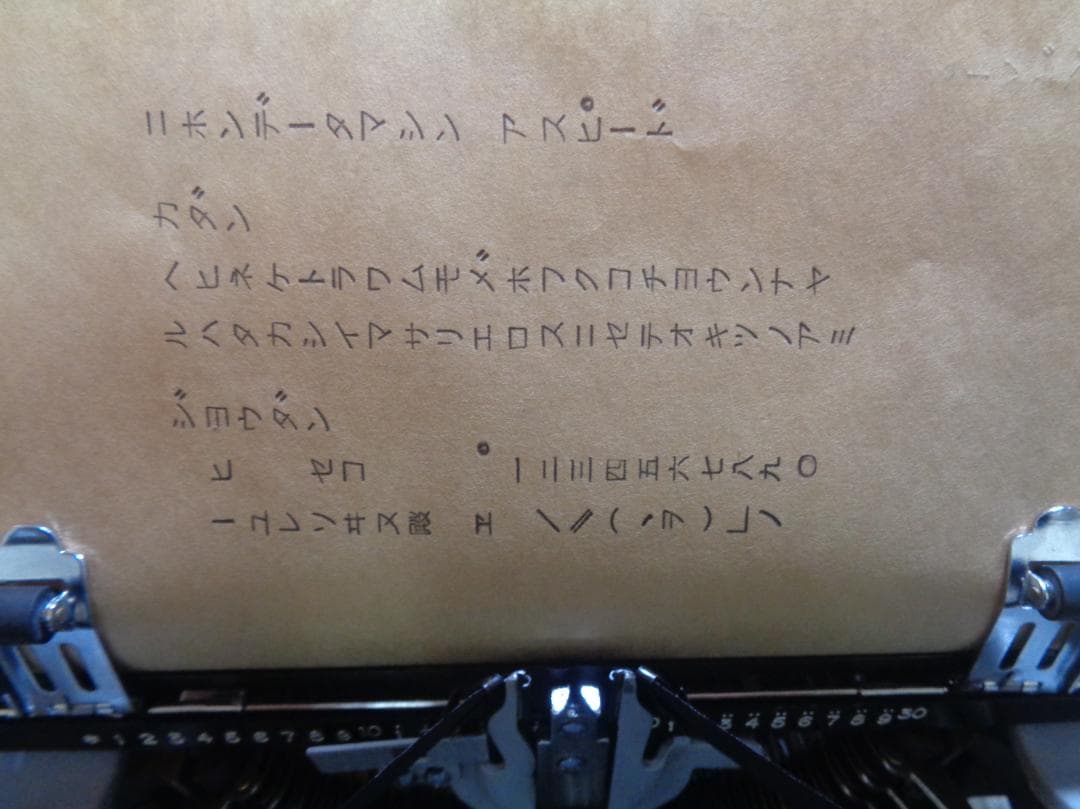 ニホンデータマシン アスピード
カダン
ヘヒネケトラワムモメ゛ホフクコチヨウンナヤ
ルハタカシイマサリエロスニセテオキツノアミ
ジヨウダン
ヒ セコ ゜ 一二三四五六七八九〇
ーユレソヰヌ殿 ヱ ／〃（、ヲ）
1 2 3 4 5 6 7 8 9 10 1 3 4 5 6 7 8 9 30